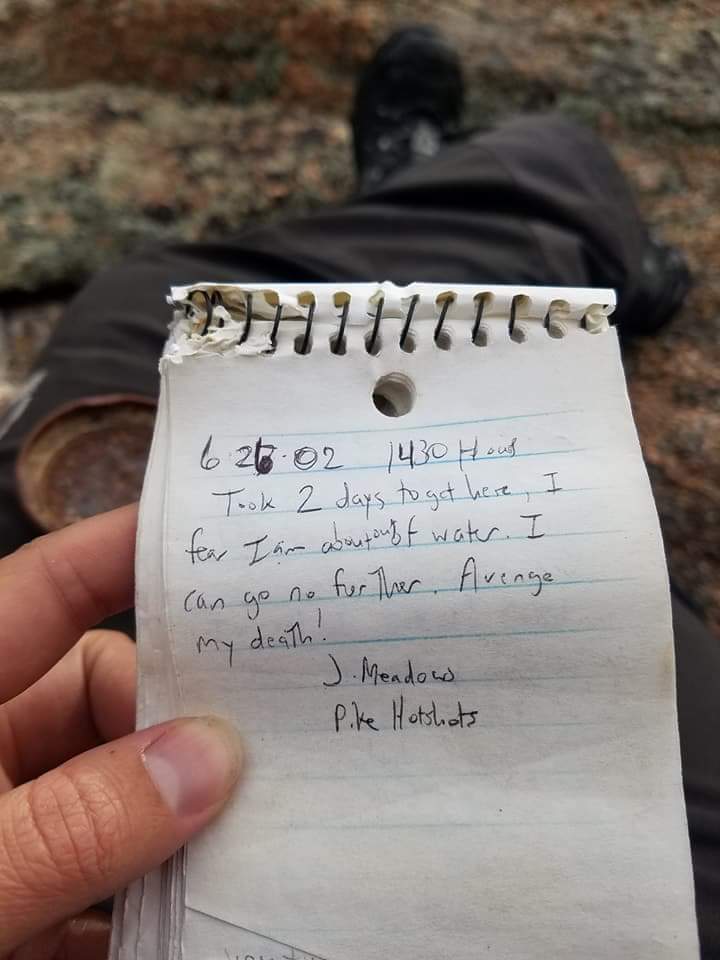 6.26.02 1430 Hours
Took 2 days to get here, I
fear I am about out of water. I
can go no further. Avenge
my death!
J. Meadows
Pike Hotshots